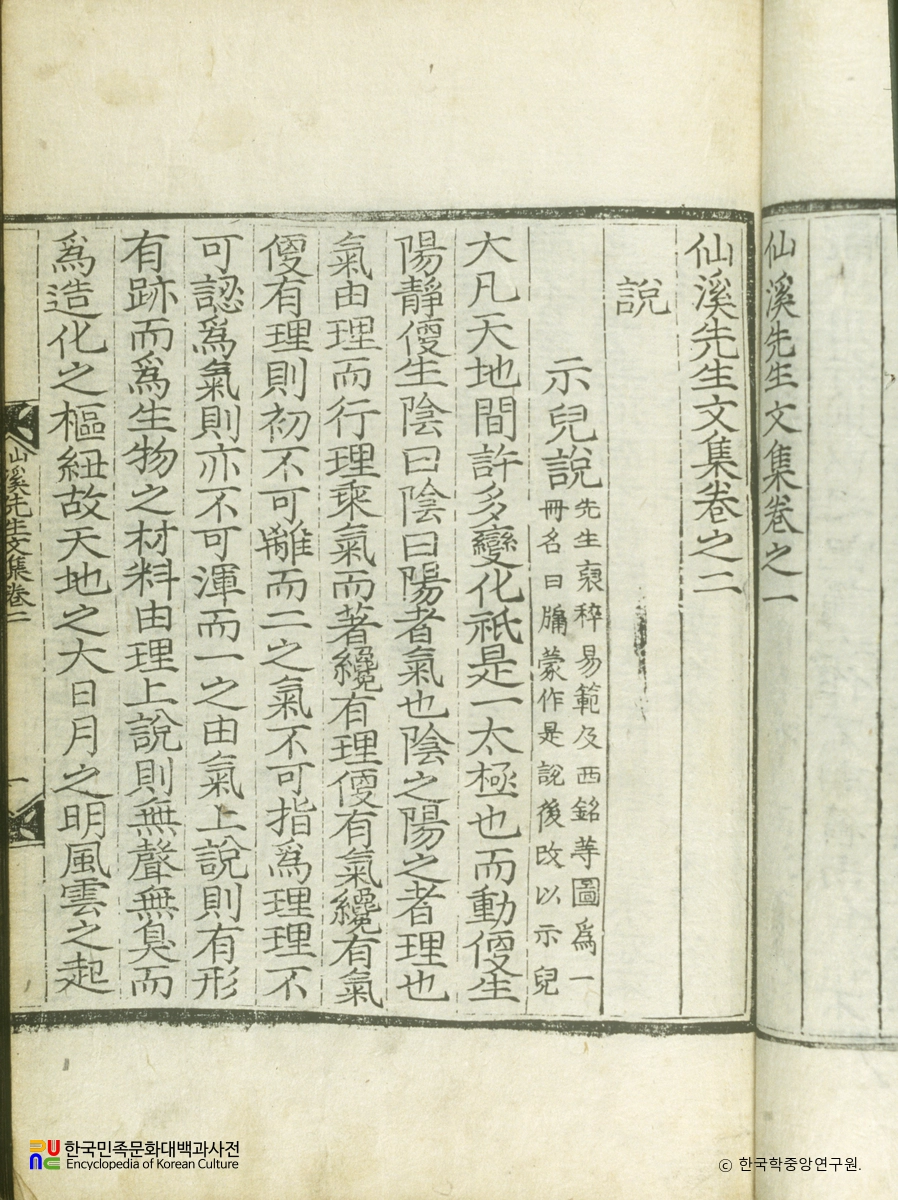 仙溪先生文集卷之一
仙溪先生文集卷之二
說
示兒說
先生裒稡易範及西銘等圖爲一
冊名曰牖蒙作是說後改以示兒
大凡天地間許多變化祇是一太極也而動便生
陽靜便生陰曰陰曰陽者氣也陰之陽之者理也
氣由理而行理乘氣而著纔有理便有氣纔有氣
便有理則初不可離而二之氣不可指爲理理不
可認爲氣則亦不可渾而一之由氣上說則有形
有跡而爲生物之材料由理上說則無聲無臭而
爲造化之樞紐故天地之大日月之明風雲之起
仙溪先生文集卷二
一
한국민족문화대백과사전
Encyclopedia of Korean Culture
© 한국학중앙연구원.